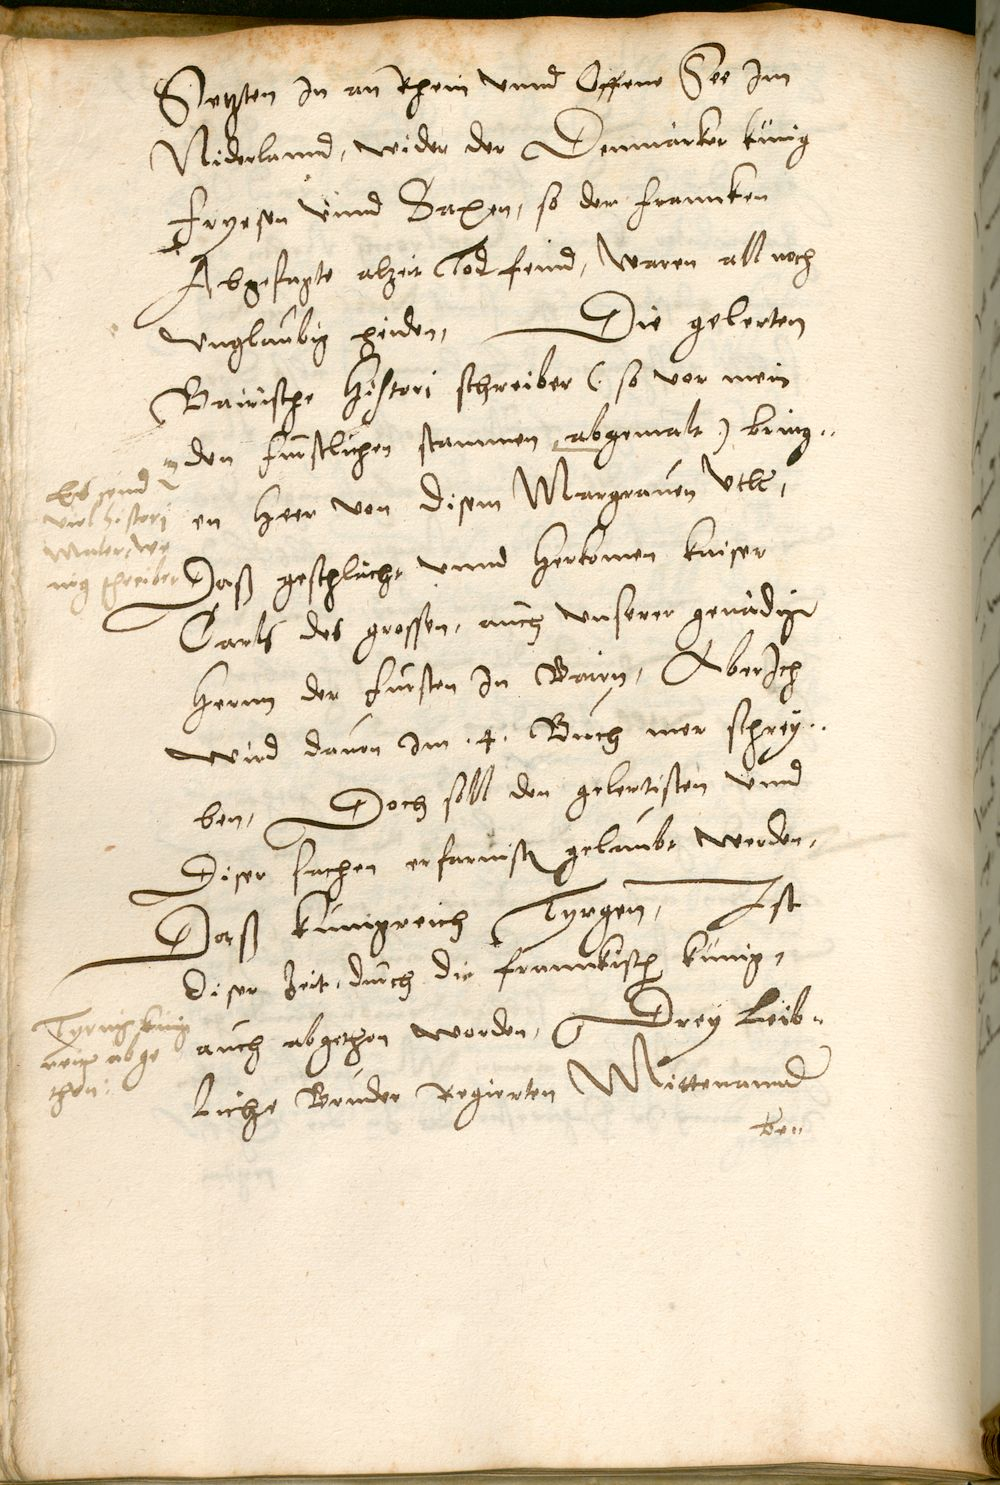 Setzten In an Rhein vnnd Offene See Im
Niderlannd, wider der Denmärker künig
Fryesen vnnd Saxen, so der Francken
Abgesagte alzeit Todfeind, Waren all noch
vnglaubig heiden, Die gelerten
Bairische Histori schreiber (so vor mein
den Fürstlichen stammen abgemalt) bring..
en Heer von disem Margrauen Vtlo,
Daß geschlächt vnnd Herkomen kaiser
Carls des grossen, auch vnserer genädigen
Herrn der Fürsten In Bairn, Aber Ich
wird dauon Im .4. Buch mer schrey..
ben, Doch soll den gelertisten vnnd
Diser sachen erfarnist gelaubt werden,
Daß künigreich Tyrgen, Ist
diser Zeit, durch die Frannkisch künig,
auch abgethon worden, Drey Leib..
liche Brüder Regierten Mittenannd
be..
Es seind
viel histori
Maler, we
nig schreiber
Tyring. künig
reich abge
thon: